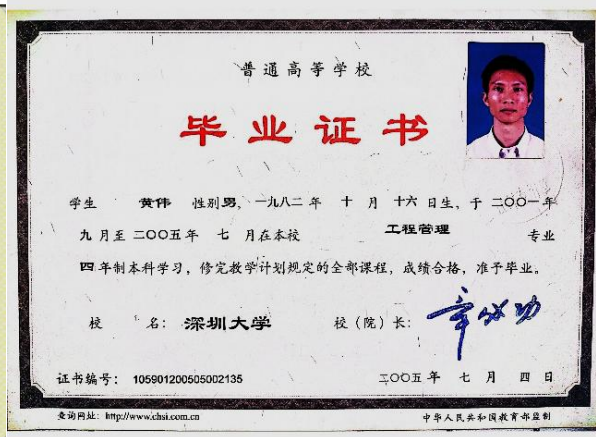 普通高等学校
毕业证书
学生 黄伟 性别男，一九八二年 十 月 十六 日生，于 二〇〇一年
九 月至 二〇〇五年 七 月在本校 工程管理 专业
四 年制本科学习，修完教学计划规定的全部课程，成绩合格，准予毕业。
校 名：深圳大学 校（院）长：章必功
证书编号：105901200505002135 二〇〇五年 七 月 四 日
查询网址：http://www.chsi.com.cn 中华人民共和国教育部监制